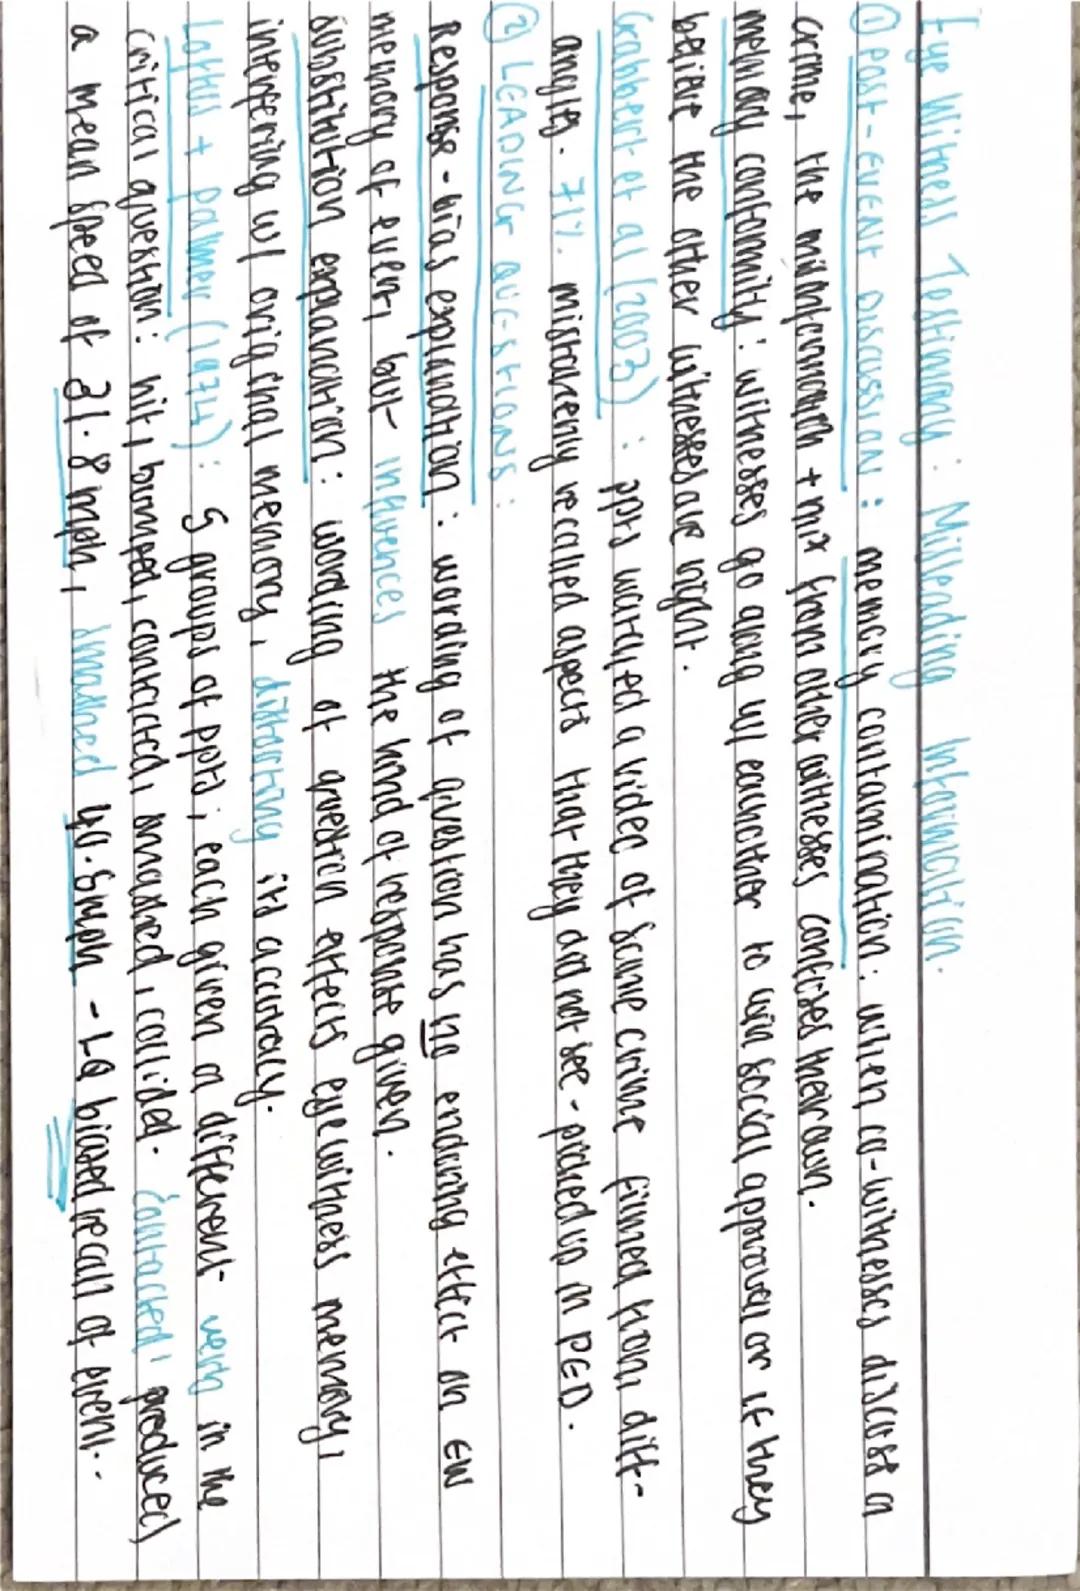 Eye Witness Testimony: Misleading Information.
① POST-EVENT DISCUSSION: memory contamination: when co-witnesses discuss a
crime, the misinformation + mix from other witnesses confuses their own.
memory conformity: witnesses go along w/ eachother to win social approval or if they
believe the other witnesses are right.
Gabbert et al (2003): ppts watched a video of same crime filmed from diff-
angles. 71% mistakenly recalled aspects that they did not see - picked up in PED.
② LEADING QUESTIONS:
Response-bias explanation: wording of question has no enduring effect on EW
memory of event, but influences the kind of response given.
substitution explanation: wording of question effects eyewitness memory,
interfering w/ original memory, distorting its accuracy.
Loftus + palmer (1974): 5 groups of ppts; each given a different verb in the
critical question: hit, bumped, contacted, smashed, collided. 'contacted' produced
a mean speed of 31.8mph, smashed 40.5mph - LQ biased recall of event..